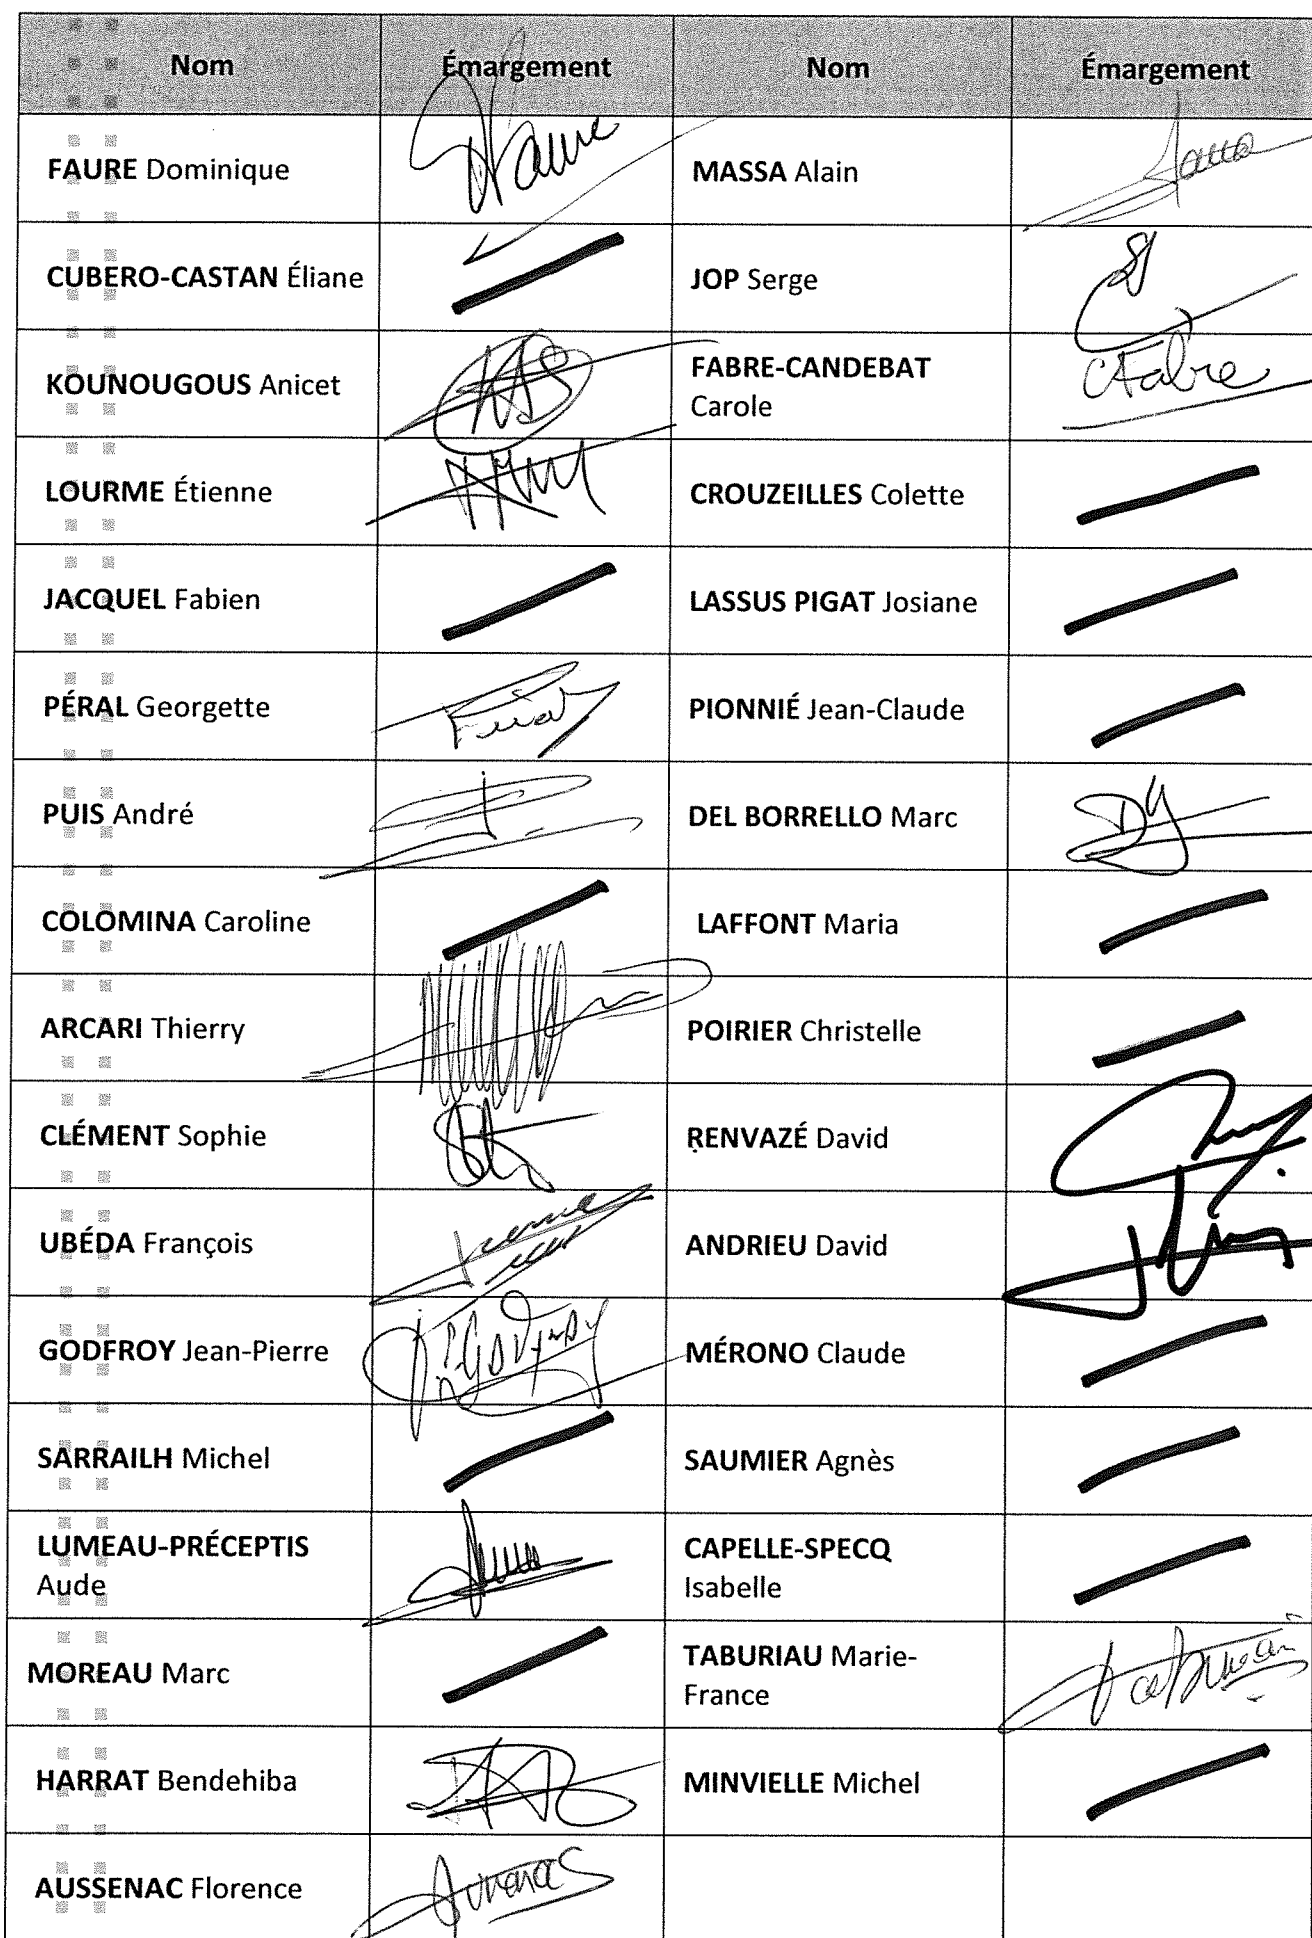 Nom Émargement Nom Émargement
FAURE Dominique DFaure MASSA Alain
CUBERO-CASTAN Éliane JOP Serge
KOUNOUGOUS Anicet FABRE-CANDEBAT
Carole CFabre
LOURME Étienne CROUZEILLES Colette
JACQUEL Fabien LASSUS PIGAT Josiane
PÉRAL Georgette PIONNIÉ Jean-Claude
PUIS André DEL BORRELLO Marc
COLOMINA Caroline LAFFONT Maria
ARCARI Thierry POIRIER Christelle
CLÉMENT Sophie RENVAZÉ David
UBÉDA François ANDRIEU David
GODFROY Jean-Pierre MÉRONO Claude
SARRAILH Michel SAUMIER Agnès
LUMEAU-PRÉCEPTIS
Aude CAPELLE-SPECQ
Isabelle
MOREAU Marc TABURIAU Marie-
France
HARRAT Bendehiba MINVIELLE Michel
AUSSENAC Florence